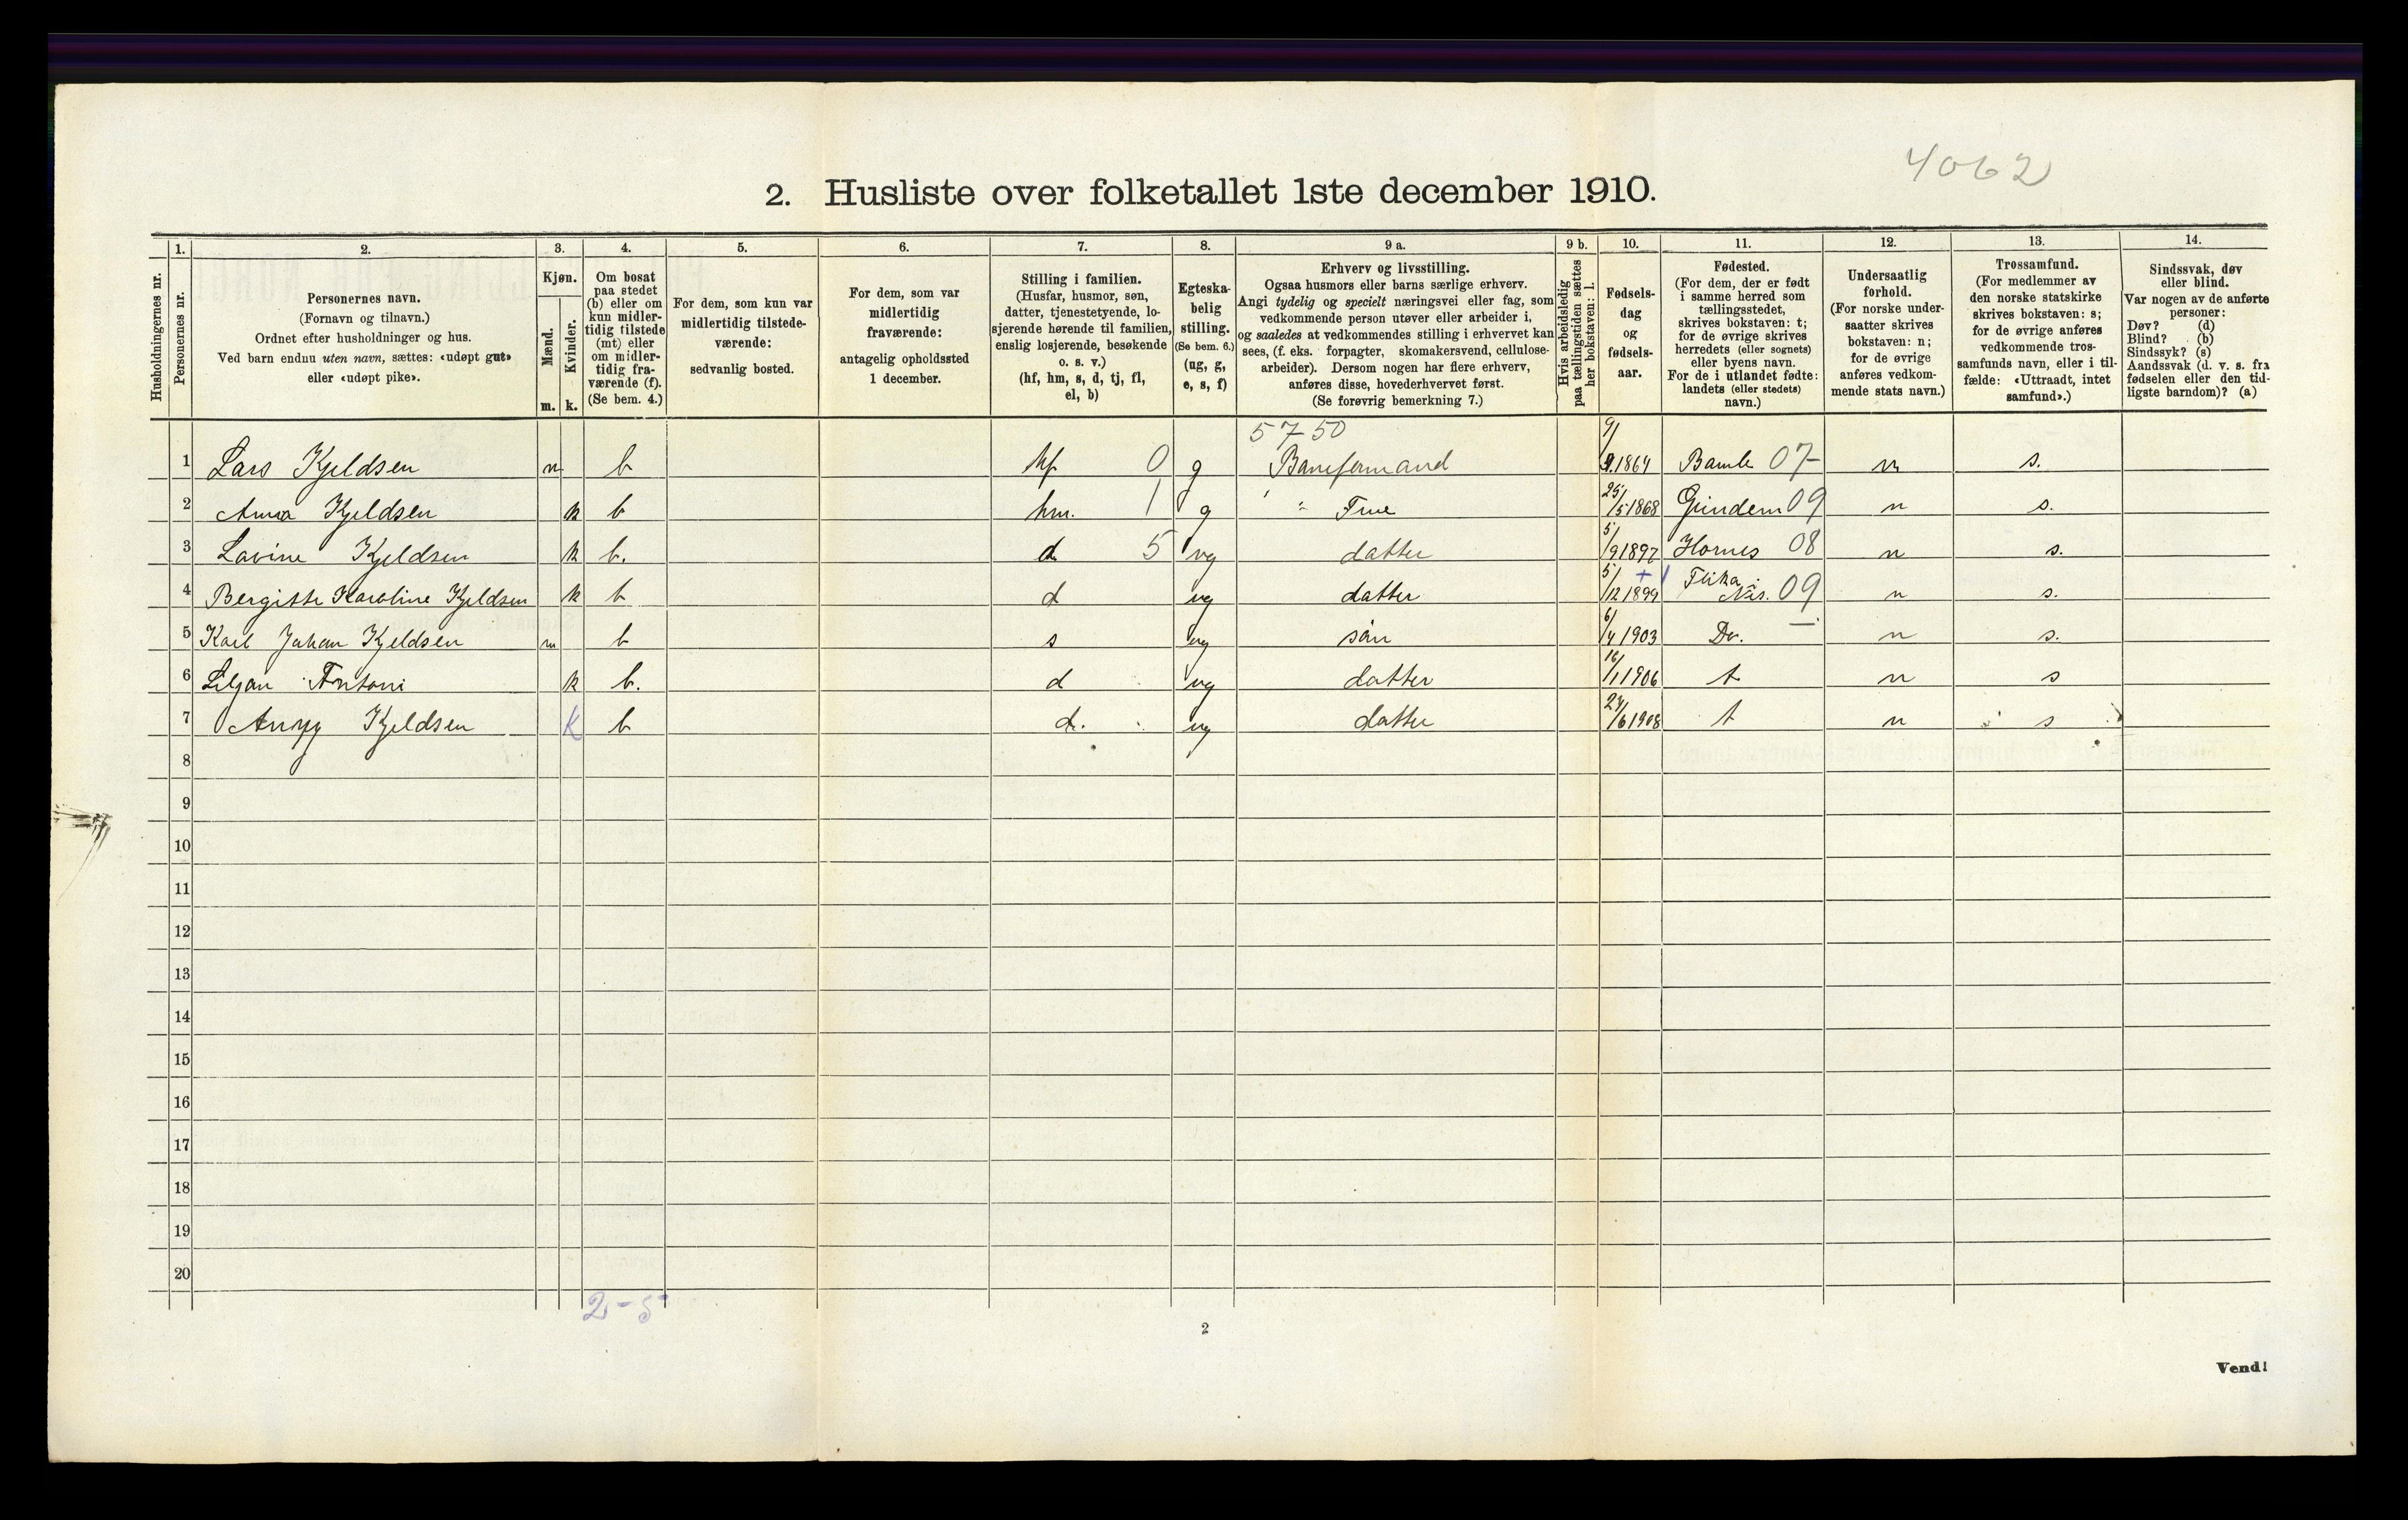 4062
2. Husliste over folketallet 1ste december 1910.
Husholdningernes nr.
1. Personernes nr.
2. Personernes navn.
(Fornavn og tilnavn.)
Ordnet efter husholdninger og hus.
Ved barn endnu uten navn, sættes: «udøpt gut»
eller «udøpt pike».
3. Kjøn.
Mænd. m.
Kvinder. k.
4. Om bosat
paa stedet
(b) eller om
kun midler-
tidig tilstede
(mt) eller
om midler-
tidig fra-
værende (f).
(Se bem. 4.)
5. For dem, som kun var
midlertidig tilstede-
værende:
sedvanlig bosted.
6. For dem, som var
midlertidig
fraværende:
antagelig opholdssted
1 december.
7. Stilling i familien.
(Husfar, husmor, søn,
datter, tjenestetyende, lo-
sjerende hørende til familien,
enslig losjerende, besøkende
o. s. v.)
(hf, hm, s, d, tj, fl,
el, b)
8. Egteska-
belig
stilling.
(Se bem. 6.)
(ug, g,
e, s, f)
9 a. Erhverv og livsstilling.
Ogsaa husmors eller barns særlige erhverv.
Angi tydelig og specielt næringsvei eller fag, som
vedkommende person utøver eller arbeider i,
og saaledes at vedkommendes stilling i erhvervet kan
sees, (f. eks. forpagter, skomakersvend, cellulose-
arbeider). Dersom nogen har flere erhverv,
anføres disse, hovederhvervet først.
(Se forøvrig bemerkning 7.)
9 b. Hvis arbeidsledig
paa tællingstiden sættes
her bokstaven: l.
10. Fødsels-
dag
og
fødsels-
aar.
11. Fødested.
(For dem, der er født
i samme herred som
tællingsstedet,
skrives bokstaven: t;
for de øvrige skrives
herredets (eller sognets)
eller byens navn.
For de i utlandet fødte:
landets (eller stedets)
navn.)
12. Undersaatlig
forhold.
(For norske under-
saatter skrives
bokstaven: n;
for de øvrige
anføres vedkom-
mende stats navn.)
13. Trossamfund.
(For medlemmer av
den norske statskirke
skrives bokstaven: s;
for de øvrige anføres
vedkommende tros-
samfunds navn, eller i til-
fælde: «Uttraadt, intet
samfund».)
14. Sindssvak, døv
eller blind.
Var nogen av de anførte
personer:
Døv? (d)
Blind? (b)
Sindssyk? (s)
Aandssvak (d. v. s. fra
fødselen eller den tid-
ligste barndom)? (a)
5750
1 Lars Kjeldsen m b hf 0 g 9/9 1864 Bamle 07- n s.
2 Anna Kjeldsen k b hm. 1 g " Frue 25/5 1868 09 n s.
3 Lovine Kjeldsen k b. d 5 ug datter 5/9 1897 Hornes 08 n s.
4 Bergitte Karoline Kjeldsen k b d ug datter 5/12 1899 09 n s.
5 Karl Johan Kjeldsen m b s ug sön 6/4 1903 Do. — n s.
6 Liljan Antoni k b. d ug datter 16/1 1906 t n s
7 Kjeldsen k b d. ug datter 24/6 1908 t n s
8
9
10
11
12
13
14
15
16
17
18
19
20
2-5
2
Vend!